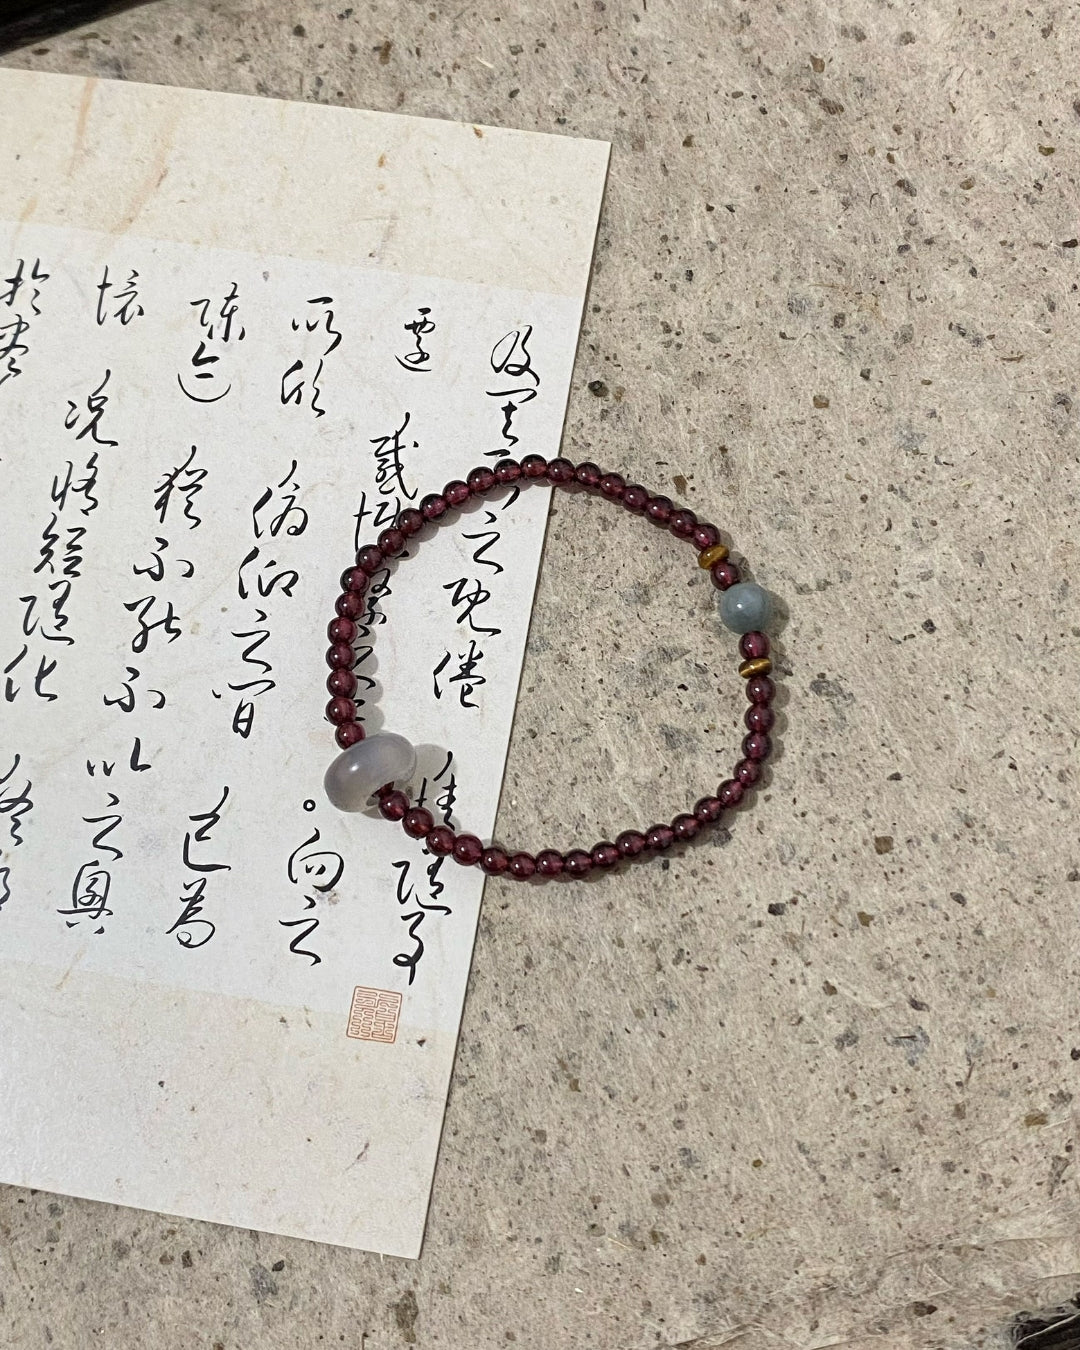 及其所之既倦 情隨事
遷 感慨係之矣。向之
所欣 俛仰之間 已為
陳迹 猶不能不以之興
懷 況脩短隨化 終期
於盡